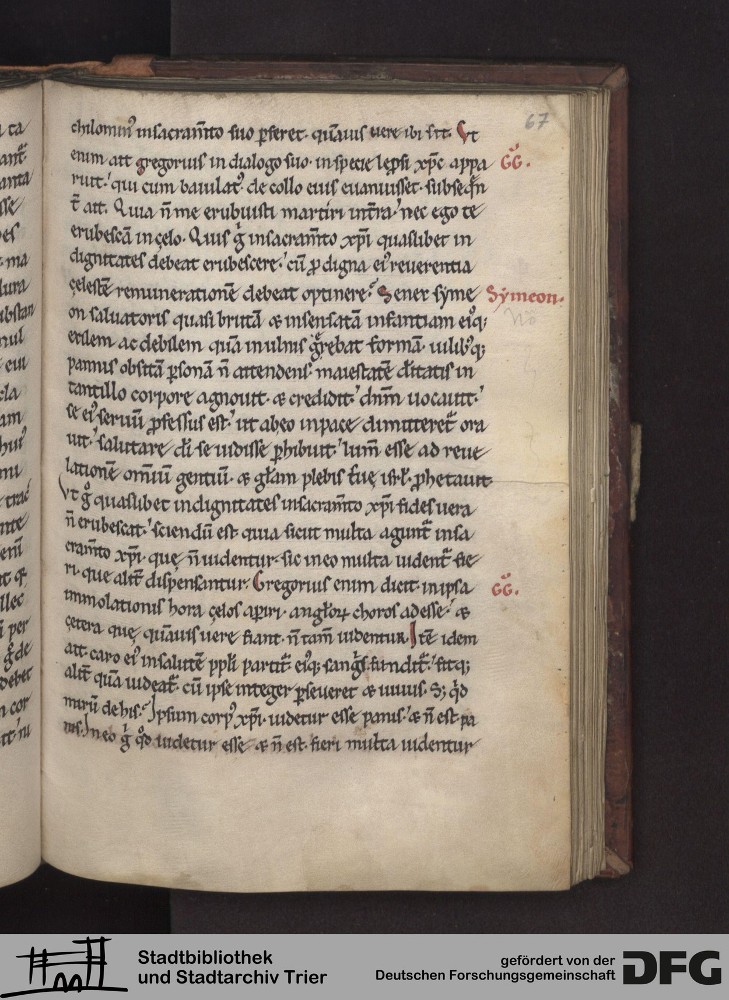 67
chilominꝰ insacram̄to suo ꝑferet. quāuis uere ibi sit. Vt
enim ait gregorius in dialogo suo. in specie lepsi xp̄c appa
GG.
ruit. qui cum baiulatꝰ de collo eius euanuisset. subseq̄n
t̄ ait. Quia n̄ me erubuisti martiri int̄ra. nec ego te
erubescā in cęlo. Quis ḡ insacram̄to xp̄i quaslibet in
dignitates debeat erubescere. cū ꝓ digna eiꝰ reuerentia
cęlestē remunerationē debeat optinere. Senex syme
Symeon.
on saluatoris quasi brutā & insensatā infantiam eiꝰq;
exilem ac debilem quā in ulnis ḡrebat formā. uilibꝰq;
pannis obsitā ꝑsonā n̄ attendens. maiestatē diuitatis in
tantillo corpore agnouit. & credidit. dn̄m uocauit.
se eiꝰ seruū ꝓfessus est. ut abeo inpace dimitteret̄ ora
uit. salutare di se uidisse ꝑhibuit. lum̄ esse ad reue
lationē om̄iū gentiū. & gl̄am plebis tuę isrl̄. ꝓhetauit.
Vt gͦ quaslibet indignitates insacram̄to xp̄i fides uera
n̄ erubescat. sciendū est quia sicut multa agunt̄ insa
cram̄to xp̄i. quę n̄ uidentur. sic in eo multa uident̄ fie
ri. que alit̄ dispensantur. Gregorius enim dicit. in ipsa
GG.
immolationis hora cęlos aꝑiri. angl̄oꝝ choros adesse. &
cętera quę quāuis uere fiant. n̄ tam̄ uidentur. Itē idem
ait. caro eiꝰ insalutē ppl̄i partit̄. eiꝰq; sanḡs fundit̄. fitq;
alit̄ quā uideat̄. cū ipse integer ꝑseueret & uiuus. S; qͥd
mirū de his. Ipsum corpꝰ xp̄i. uidetur esse panis. & n̄ est pa
nis. In eo ḡ qͦd uidetur esse & n̄ est. fieri multa uidentur
Stadtbibliothek
und Stadtarchiv Trier
gefördert von der
Deutschen Forschungsgemeinschaft
DFG